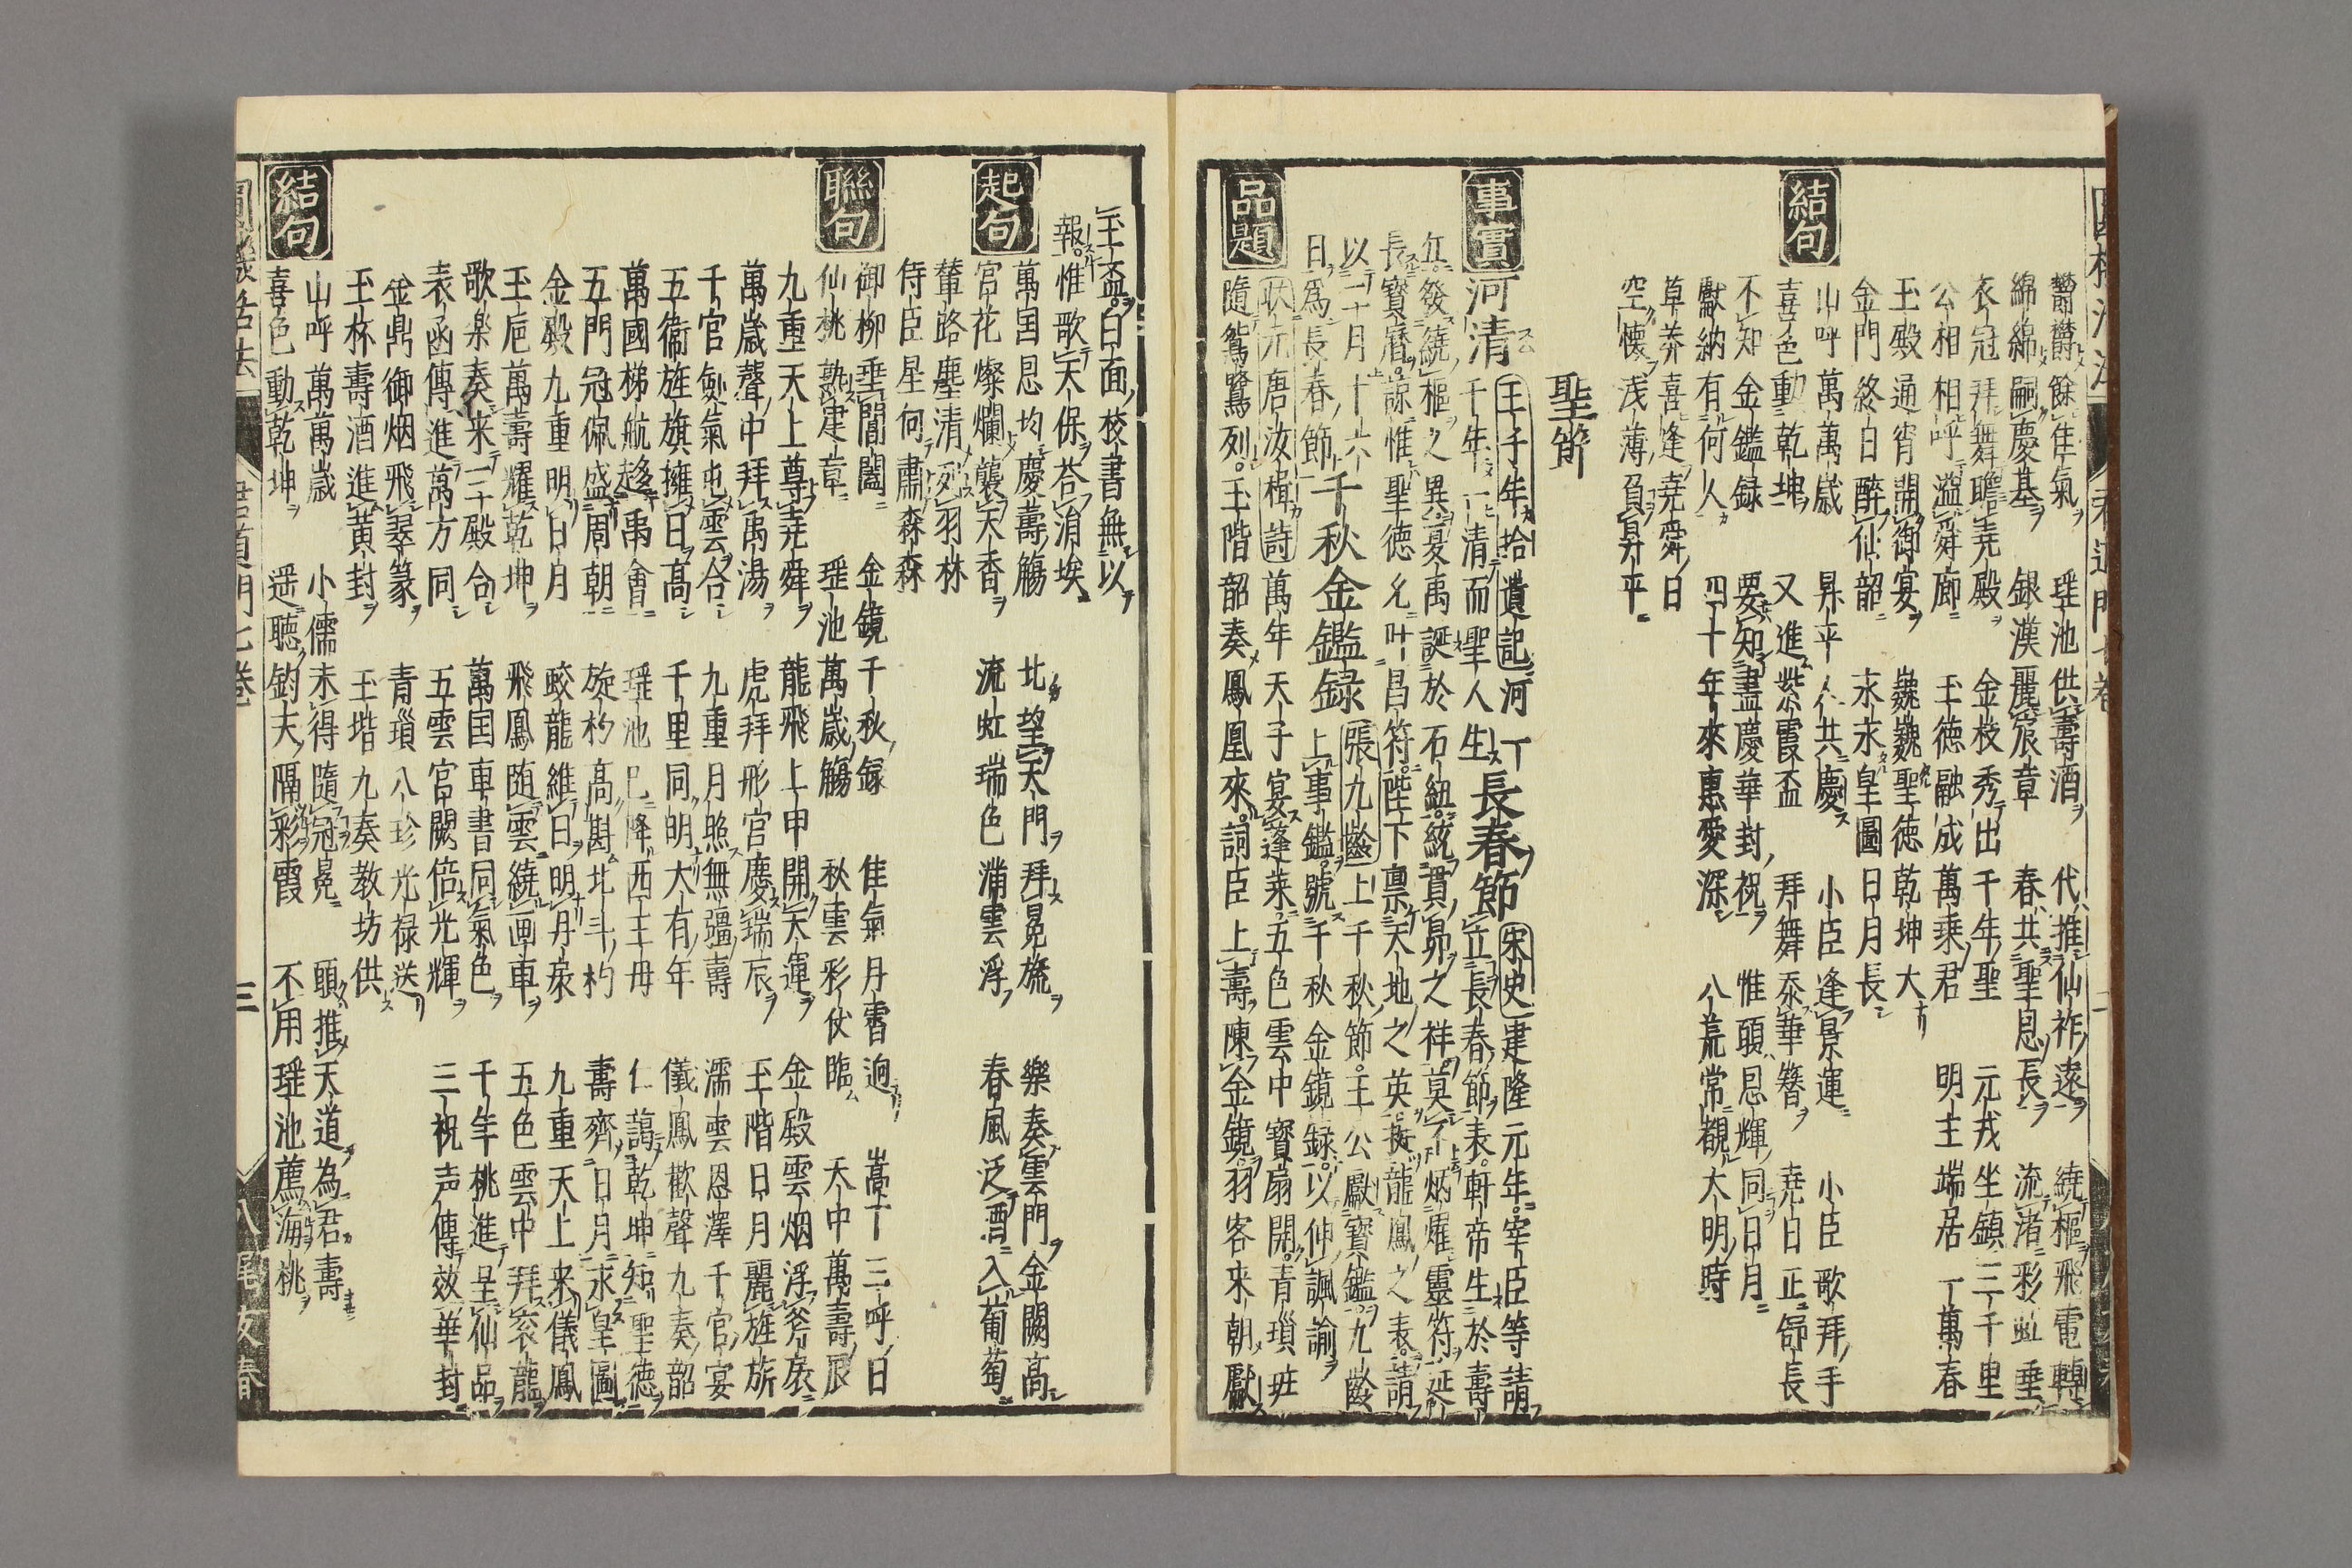 鬱鬱餘佳氣 瑶池供壽酒 代推仙祚遠 繞樞飛電轉
綿綿嗣慶基 銀漢麗宸章 春共聖恩長 流渚彩虹垂
衣冠拜舞瞻堯殿 金枝秀出千年聖 元戎坐鎮三千里
公相相呼溢舜廊 玉徳融成萬乗君 明主端居一萬春
玉殿通宵開御宴 巍巍聖徳乾坤大
金門終日醉仙韶 永永皇圖日月長
結句
山呼萬萬歳 昇平人共慶 小臣逢景運 小臣歌拜手
喜色動乾坤 又進紫霞盃 拜舞忝華簪 堯日正舒長
不知金鑑録 要知盡慶華封祝 惟願恩輝同日月
獻納有何人 四十年來惠愛深 八荒常覩大明時
草莽喜逢堯舜日
空懷浅薄負昇平
聖節
事實
河清 王子年拾遺記河千年一清而聖人生 長春節 宋史建隆元年宰臣等請立長春節表軒帝生於壽
丘發繞樞之異夏禹誕於石紐統貫昴之祥莫不炳燿靈符延
長寳暦諒惟聖徳允叶昌符陛下禀天地之英挺龍鳳之表請
以二十月十六日為長春節 千秋金鑑録 張九齡上千秋節王公獻寳鑑九齡
上事鑑號千秋金鏡録以伸諷諭
品題
耿湋唐汝楫詩萬年天子宴蓬莱五色雲中寳扇開青瑣班
隨鴛鷺列玉階韶奏鳳凰來詞臣上壽陳金鏡羽客来朝獻
玉盃白面校書無以
報惟歌天保荅涓埃
起句
萬国恩均慶壽觴 北望天門拜冕旒 樂奏雲門金闕高
宮花燦爛襲天香 流虹瑞色满雲浮 春風泛酒入葡萄
輦路塵清列羽林
侍臣星何肅森森
聯句
御柳垂閶闔 金鏡千秋録 佳氣丹霄迥 嵩一三呼日
仙桃熟建章 瑶池萬歳觴 秋雲彩仗臨 天中萬壽辰
九重天上尊堯舜 龍飛上甲開天運 金殿雲烟浮斧扆
萬歳聲中拜禹湯 虎拜形官慶瑞辰 玉階日月麗旌旂
千官劍氣屯雲合 九重月照無疆壽 濡雲恩澤千官宴
五衞旌旗擁日高 千里同明大有年 儀鳳歡聲九奏韶
萬國梯航趍禹會 瑶池已降西王母 仁藹乾坤知聖徳
五門冠佩盛周朝 旋杓高斟北斗杓 壽齊日月永皇圖
金殿九重明日月 蛟龍維日明丹扆 九重天上来儀鳳
玉巵萬壽耀乾坤 飛鳳随雲繞画車 五色雲中拜衮龍
歌楽奏来三殿合 萬国車書同氣色 千年桃進呈仙品
表函傳進萬方同 五雲宮闕倍光輝 三祝声傳效華封
金鼎御烟飛翠篆 青瑣八珍光禄送
玉杯壽酒進黄封 玉堦九奏教坊供
結句
山呼萬萬歳 小儒未得隨冠冕 願推天道為君壽
喜色動乾坤 遥聴鈞天隔彩霞 不用瑶池薦海桃
三